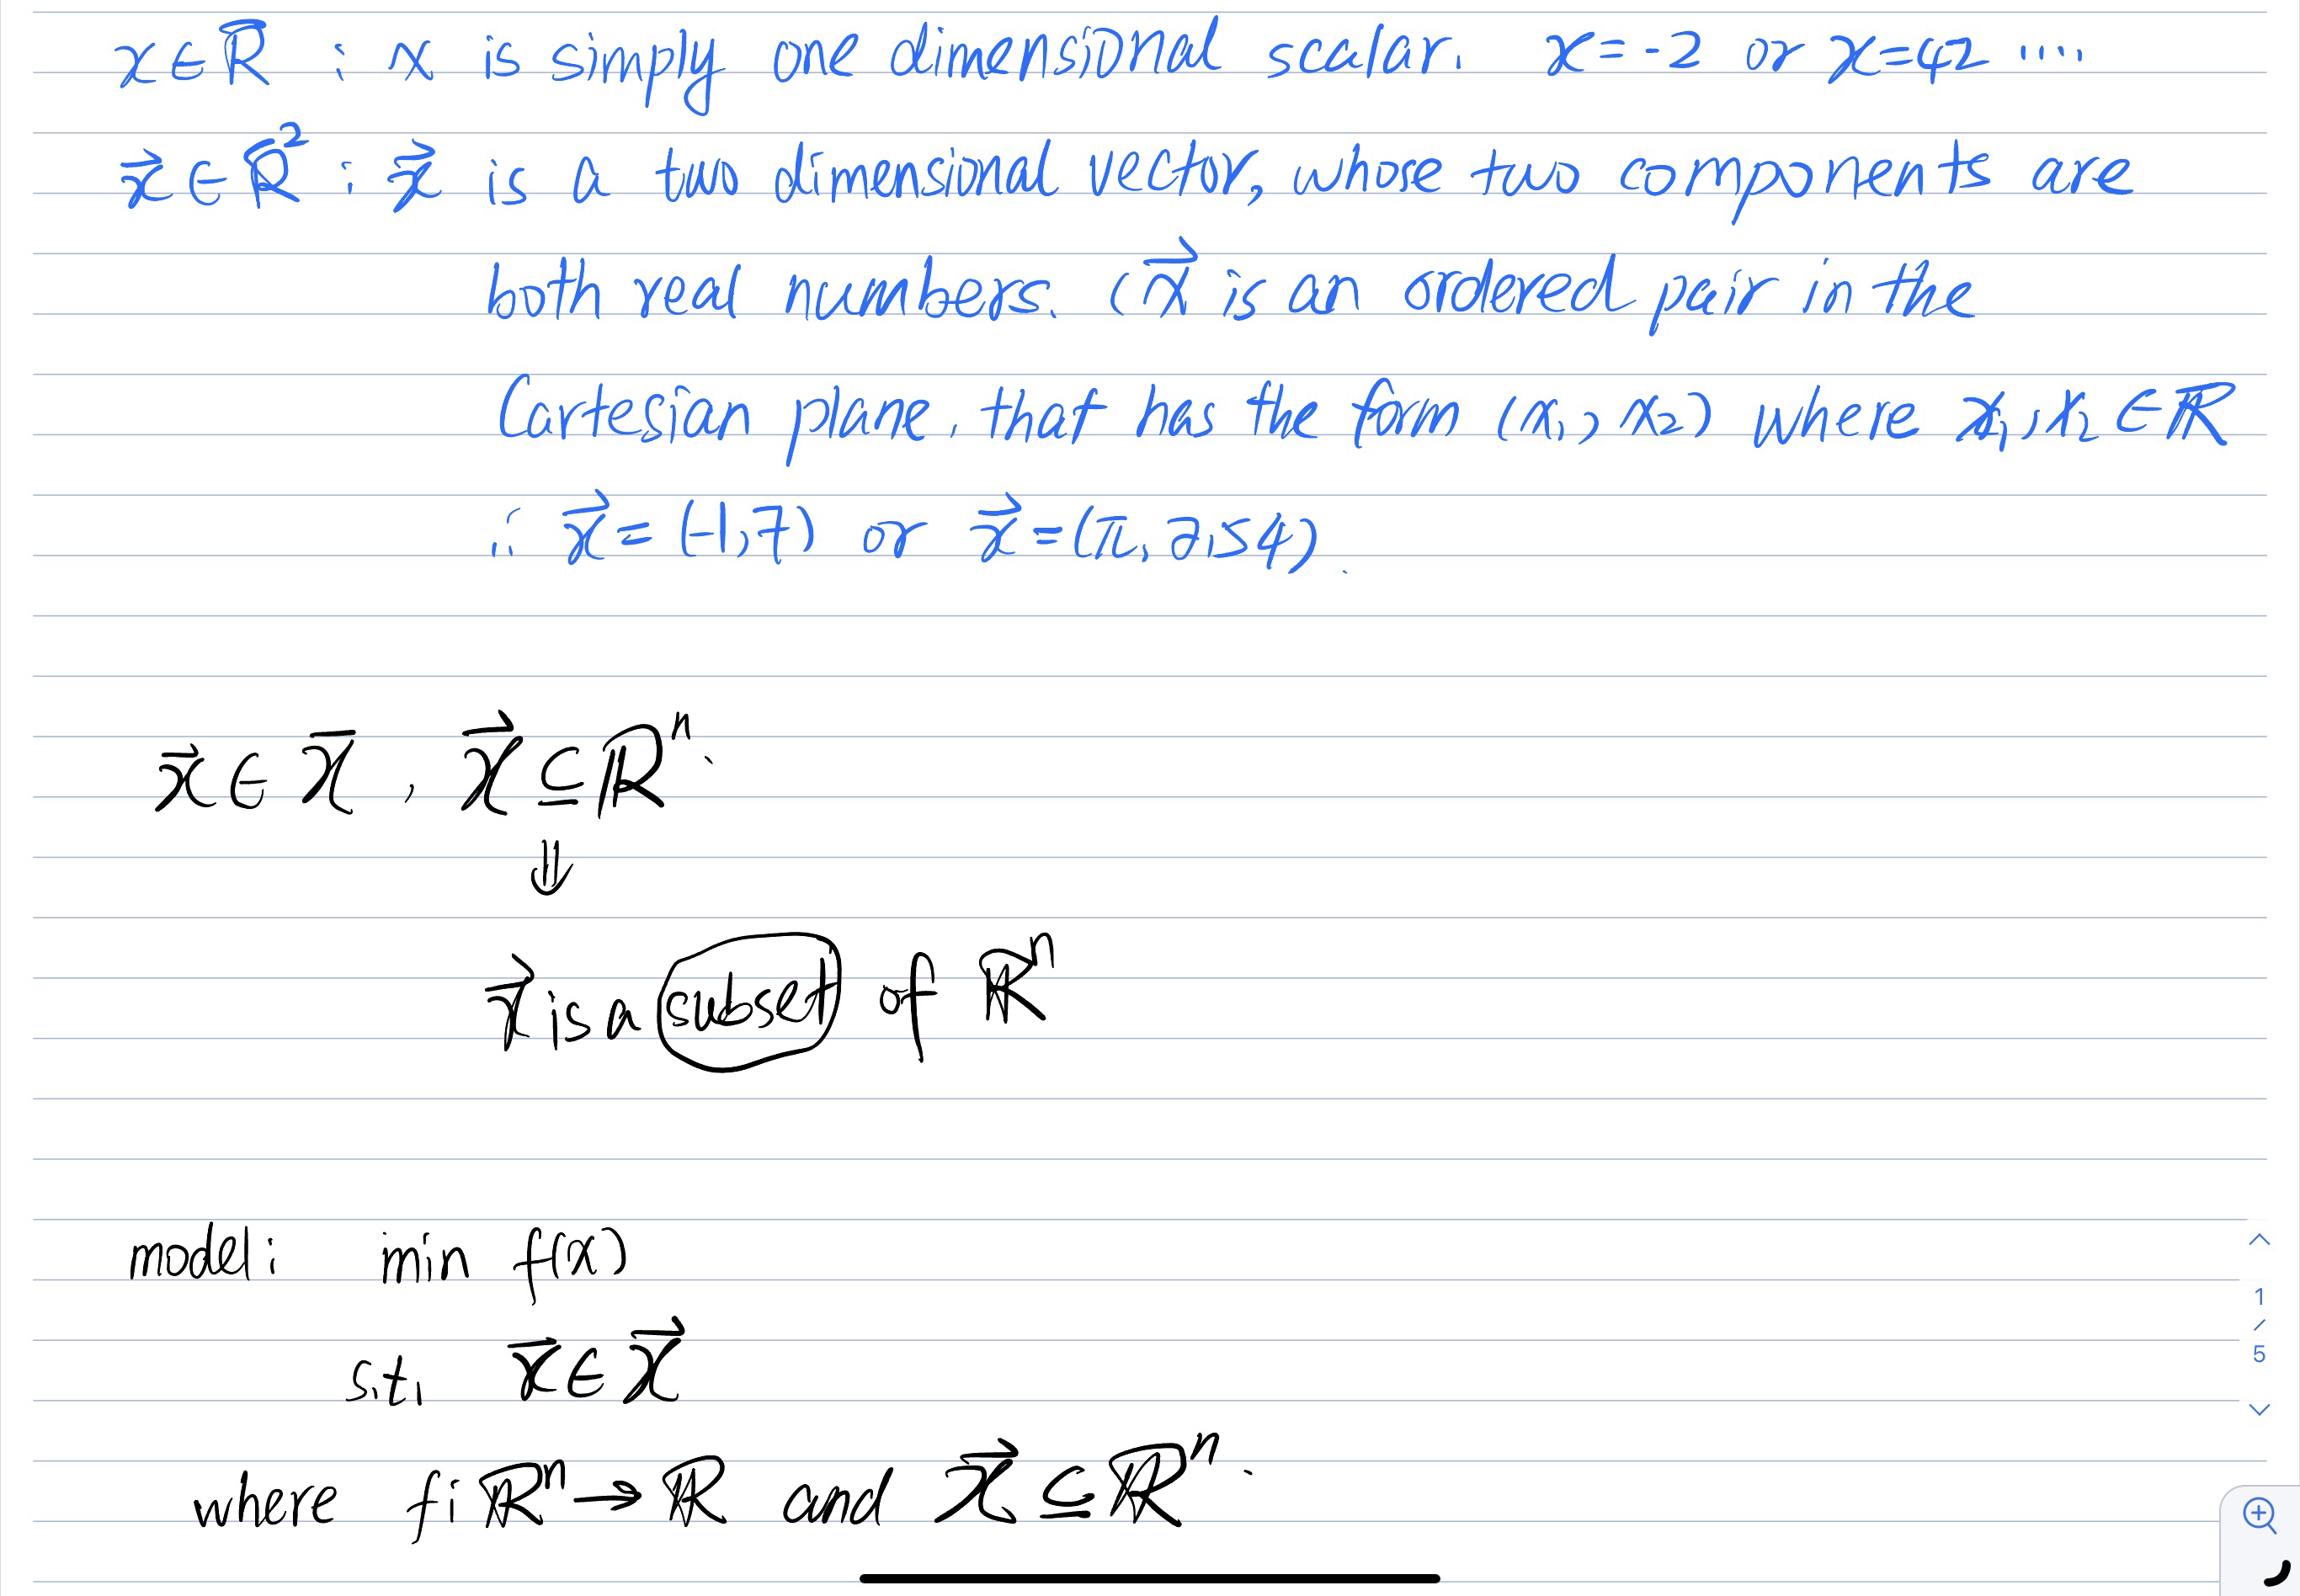 x∈ℝ : x is simply one dimensional scalar. x=-2 or x=42 ....
x⃗∈ℝ² : x⃗ is a two dimensional vector, whose two components are
both real numbers. (x⃗ is an ordered pair in the
Cartesian plane, that has the form (x₁, x₂) where x₁, x₂∈ℝ
: x⃗=(-1,7) or x⃗=(π, 2.54).
x⃗∈X⃗, X⃗⊆ℝⁿ.
⇓
X⃗ is a subset of ℝⁿ
model: min f(x)
s.t. x⃗∈X⃗
where f: ℝⁿ→ℝ and X⃗⊆ℝⁿ.
1
/
5